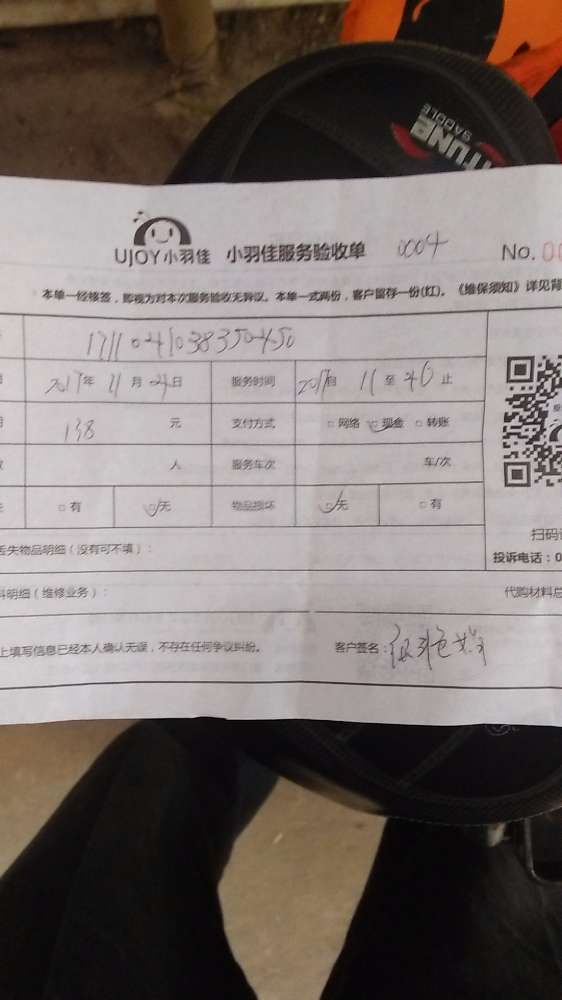 TUNE
SADDLE
UJOY小羽佳 小羽佳服务验收单 0004 No. 00
本单一经修签，即视为对本次服务验收无异议。本单一式两份，客户留存一份(红)。《维保须知》详见背
年 11 月 日 服务时间 11 至 止
138 元 支付方式 □网络 □现金 □转账
人 服务车次 车/次
□有 □无 物品损坏 □无 □有
丢失物品明细（没有可不填）：
扫码
投诉电话：0
料明细（维修业务）： 代购材料总
上填写信息已经本人确认无误，不存在任何争议纠纷。 客户签名：